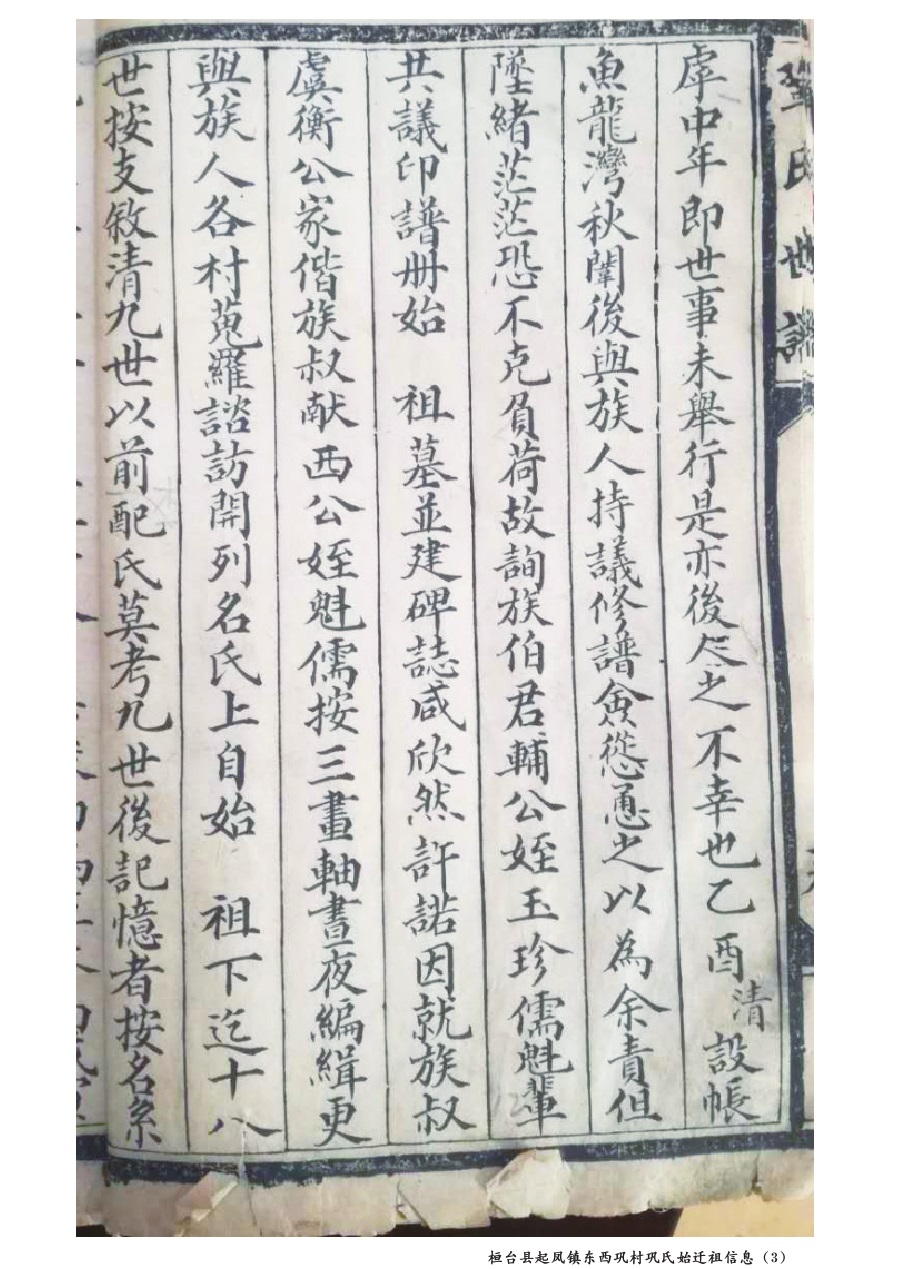 鞏氏世譜
虛中年即世事未舉行是亦後尽之不幸也乙酉清設帳
魚龍灣秋闈後與族人持議修譜僉慫恿之以為余責但
墜緒茫茫恐不克負荷故詢族伯君輔公姪玉珍儒魁輩
共議印譜册始 祖墓並建碑誌咸欣然許諾因就族叔
虞衡公家偕族叔献西公姪魁儒按三畫軸晝夜編緝更
與族人各村蒐羅諮訪開列名氏上自始 祖下迄十八
世按支敘清九世以前配氏莫考九世後記憶者按名系
桓台县起凤镇东西巩村巩氏始迁祖信息（3）